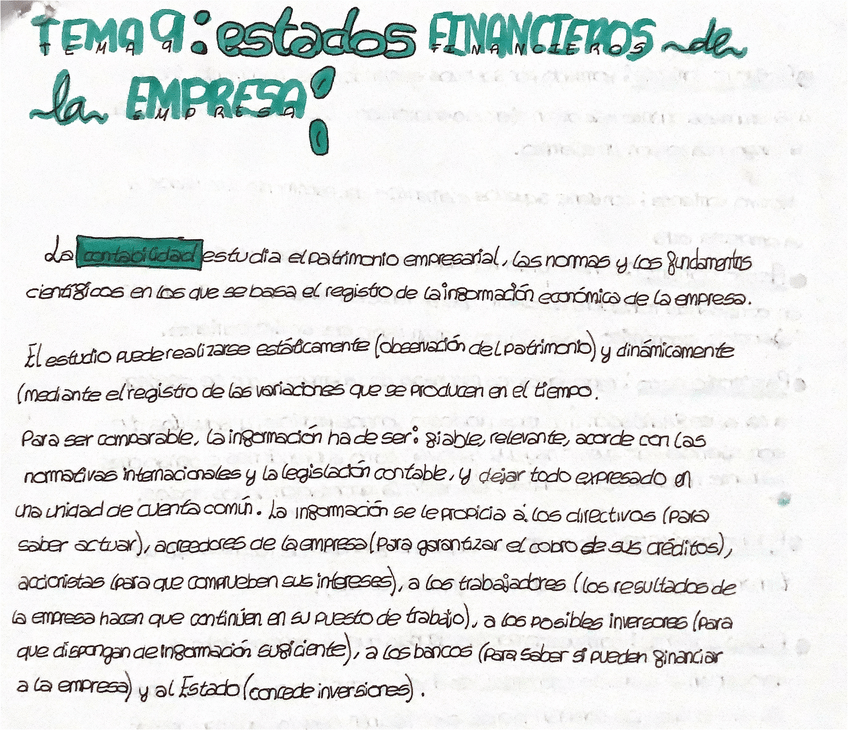 TEMA 9: estados FINANCIEROS de
la EMPRESA!
La contabilidad estudia el patrimonio empresarial, las normas y los fundamentos
científicos en los que se basa el registro de la información económica de la empresa.
El estudio puede realizarse estáticamente (observación del patrimonio) y dinámicamente
(mediante el registro de las variaciones que se producen en el tiempo.
Para ser comparable, la información ha de ser: fiable, relevante, acorde con las
normativas internacionales y la legislación contable, y dejar todo expresado en
una unidad de cuenta común. La información se le propicia a: los directivos (para
saber actuar), acreedores de la empresa (para garantizar el cobro de sus créditos),
accionistas (para que comprueben sus intereses), a los trabajadores (los resultados de
la empresa hacen que continúen en su puesto de trabajo), a los posibles inversores (para
que dispongan de información suficiente), a los bancos (para saber si pueden financiar
a la empresa) y al Estado (concede inversiones).